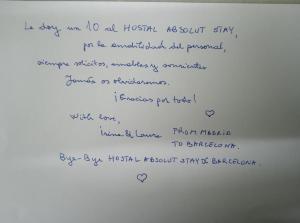 Le doy un 10 al HOSTAL ABSOLUT STAY,
por la amabilidad del personal,
siempre solícitos, amables y sonrientes
Jamás os olvidaremos.
¡Gracias por todo!
With love,
Irene & Laura FROM MADRID
TO BARCELONA.
Bye-Bye HOSTAL ABSOLUT STAY DE BARCELONA.